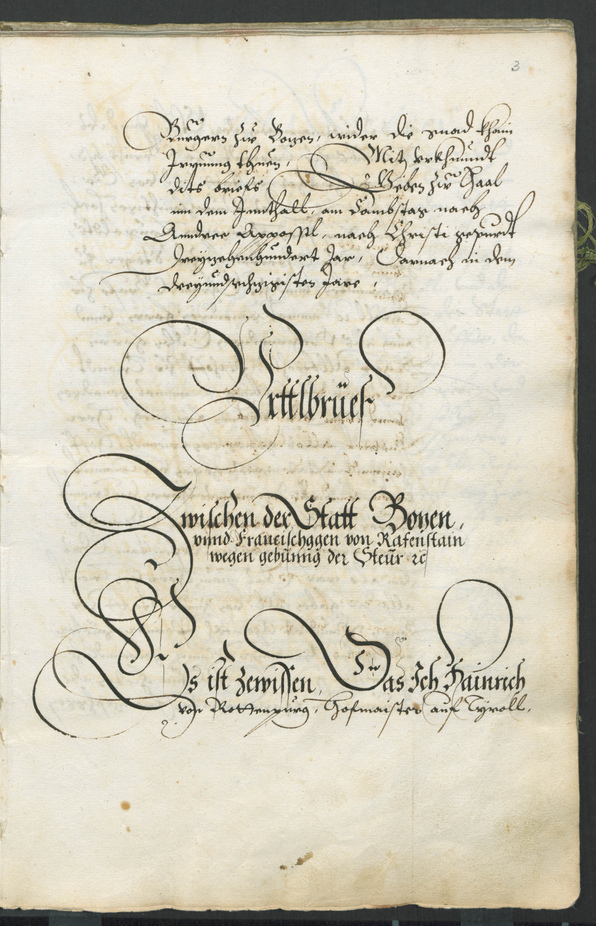 3
Burgern zů Bozen, wider die gnad khain
Irrung thuen, Mit vrkhundt
dits briefs Geben zů Haal
im dem Innthall, am Sambstag nach
Anndree Apposstl, nach Christi gepurdt
Dreyzehenhundert Jar, Darnach in dem
dreyundsechzigisten Jare,
Vrttlbrüef
Zwischen der Statt Bozen,
vnnd Franzischggen von Rafenstain
wegen gebunng der Steur ꝛc
Es ist zewissen, Das Ich Hainrich
von Rottenpurg, Hofmaister auf Tyroll,